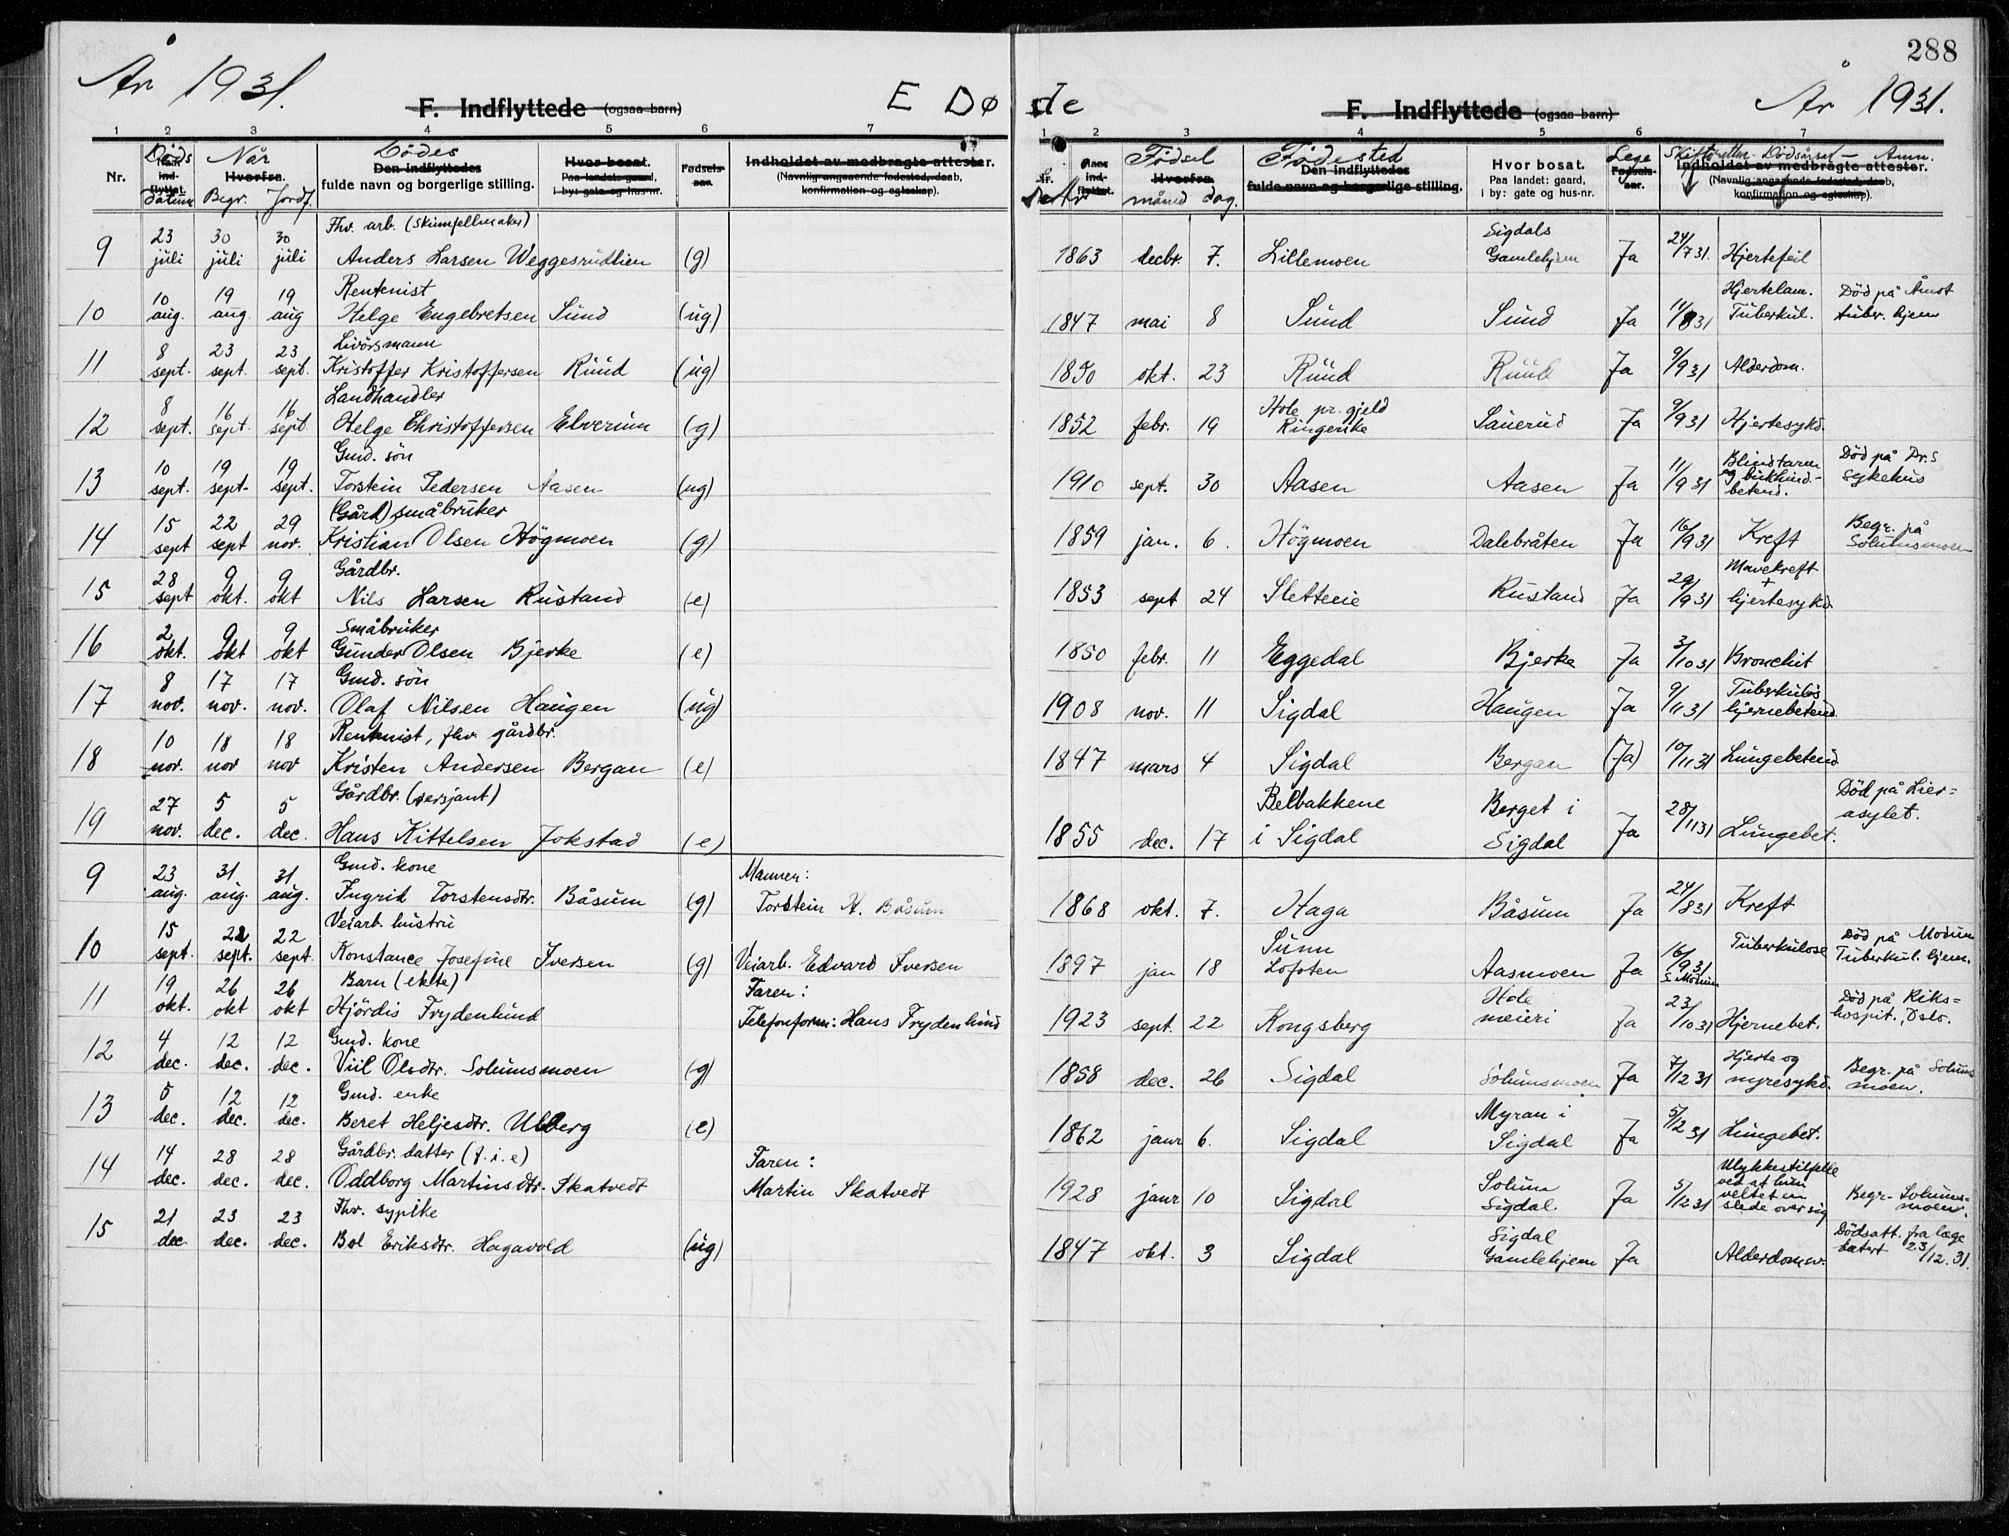 288
År 1931.
E Døde
År 1931.
F. Indflyttede (ogsaa barn)
F. Indflyttede (ogsaa barn)
1 2 3 4 5 6 7
1 2 3 4 5 6 7
Nr. Døds Datum Når Begr. Jordf. Dødes fulde navn og borgerlige stilling. Hvor bosat. Paa landet: gaard, i by: gate og hus-nr. Fødsels-aar. Indholdet av medbragte attester. (Navnlig angaaende fødested, daab, konfirmation og egteskap).
År Fødsel måned dag. Fødested Den indflyttedes fulde navn og borgerlige stilling. Hvor bosat. Paa landet: gaard, i by: gate og hus-nr. Lege Fødsels-aar. Skifteretten Dødsårsak Anm. Indholdet av medbragte attester. (Navnlig angaaende fødested, daab, konfirmation og egteskap).
9 23 juli 30 juli 30 juli Fhv. arb. (skinnfellmaker) Anders Larsen Weggesrudlien (g)
1863 decbr. 7. Lillemoen Sigdals Gamlehjem Ja 24/7 31. Hjertefeil
10 10 aug. 19 aug. 19 aug Rentenist Helge Engebretsen Sund (ug)
1847 mai 8 Sund Sund Ja 11/8 31 Hjertelam. Tuberkul. Død på Åmot tuber. hjem
11 8 sept. 23 sept. 23 sept. Livörsmann Kristoffer Kristoffersen Ruud (ug)
1850 okt. 23 Ruud Ruud Ja 9/9 31 Alderdom.
12 8 sept. 16 sept. 16 sept. Landhandler Helge Christoffersen Elverum (g)
1852 febr. 19 Hole pr. gjeld Ringerike Sauerud Ja 9/9 31 Hjertesykd.
13 10 sept. 19 sept. 19 sept. Gmd. sön Torstein Pedersen Aasen (ug)
1910 sept. 30 Aasen Aasen Ja 11/9 31 Blindtarm og bukhind-betend. Død på Dr.s sykehus
14 15 sept 22 sept 29 nov. (Gård) småbruker Kristian Olsen Högmoen (g)
1859 jan. 6. Högmoen Dalebråten Ja 16/9 31 Kreft Begr. på Solumsmoen
15 28 sept 9 okt. 9 okt Gårdbr. Nils Larsen Rustand (e)
1853 sept 24 Sletterie Rustand Ja 29/9 31 Mavekreft + hjertesykd.
16 2 okt. 9 okt 9 okt Småbruker Gunder Olsen Bjerke (e)
1850 febr. 11 Eggedal Bjerke Ja 3/10 31 Bronchit
17 8 nov. 17 nov. 17 nov. Gmd. sön Olaf Nilsen Haugen (ug)
1908 nov. 11 Sigdal Haugen Ja 9/11 31 Tuberkuløs hjernebetend.
18 10 nov. 18 nov 18 nov Rentenist, fhv. gårdbr. Kristen Andersen Bergan (e)
1847 mars 4 Sigdal Bergan (Ja) 10/11 31 Lungebetend
19 27 nov. 5 dec. 5 dec. Gårdbr. (sersjant) Hans Kittelsen Jokstad (e)
1855 dec. 17 Belbakkene i Sigdal Berget i Sigdal Ja 28/11 31 Lungebet. Død på Lier=asylet.
9 23 aug. 31 aug. 31 aug. Gmd. kone Ingrid Torstensdtr. Båsum (g) Mannen: Torstein H. Båsum
1868 okt. 7. Haga Båsum Ja 24/8 31 Kreft
10 15 sept. 22 sept. 22 sept. Veiarb. hustru Konstance Josefine Iversen (g) Veiarb. Edvard Iversen
1897 jan 18 Sunn Lofoten Aasmoen Ja 16/9 31 S. Modum Tuberkulose Død på Modum Tuberkul. hjem.
11 19 okt. 26 okt 26 okt Barn (ekte) Hjördis Frydenlund Faren: Telefonform: Hans Frydenlund
1923 sept. 22 Kongsberg Hole meieri Ja 23/10 31 Hjernebet. Død på Riks=hospit., Oslo.
12 4 dec. 12 dec. 12 dec. Gmd. kone Viil Olsdtr. Solumsmoen (g)
1858 dec. 26 Sigdal Solumsmoen Ja 7/12 31 Hjerte og nyresykd. Begr. på Solumsmoen.
13 5 dec. 12 dec. 12 dec. Gmd. enke Beret Heljesdtr. Ulberg (e)
1862 janr 6. Sigdal Myran i Sigdal Ja 5/12 31 Lungebet.
14 14 dec. 28 dec. 28 dec. Gårdbr. datter (f. i. e) Oddborg Martinsdtr. Skatvedt Faren: Martin Skatvedt
1928 janr 10 Sigdal Solum Sigdal Ja 5/12 31 Ulykkestilfelle ved at hun veltet en slede over sig Begr. Solumsmoen.
15 21 dec 23 dec. 23 dec. Fhv. sypike Bol Eriksdtr. Hagavold (ug)
1847 okt. 3 Sigdal Sigdal Gamlehjem Ja Alderdomsv. Dødsatt. fra læge datert 23/12. 31.